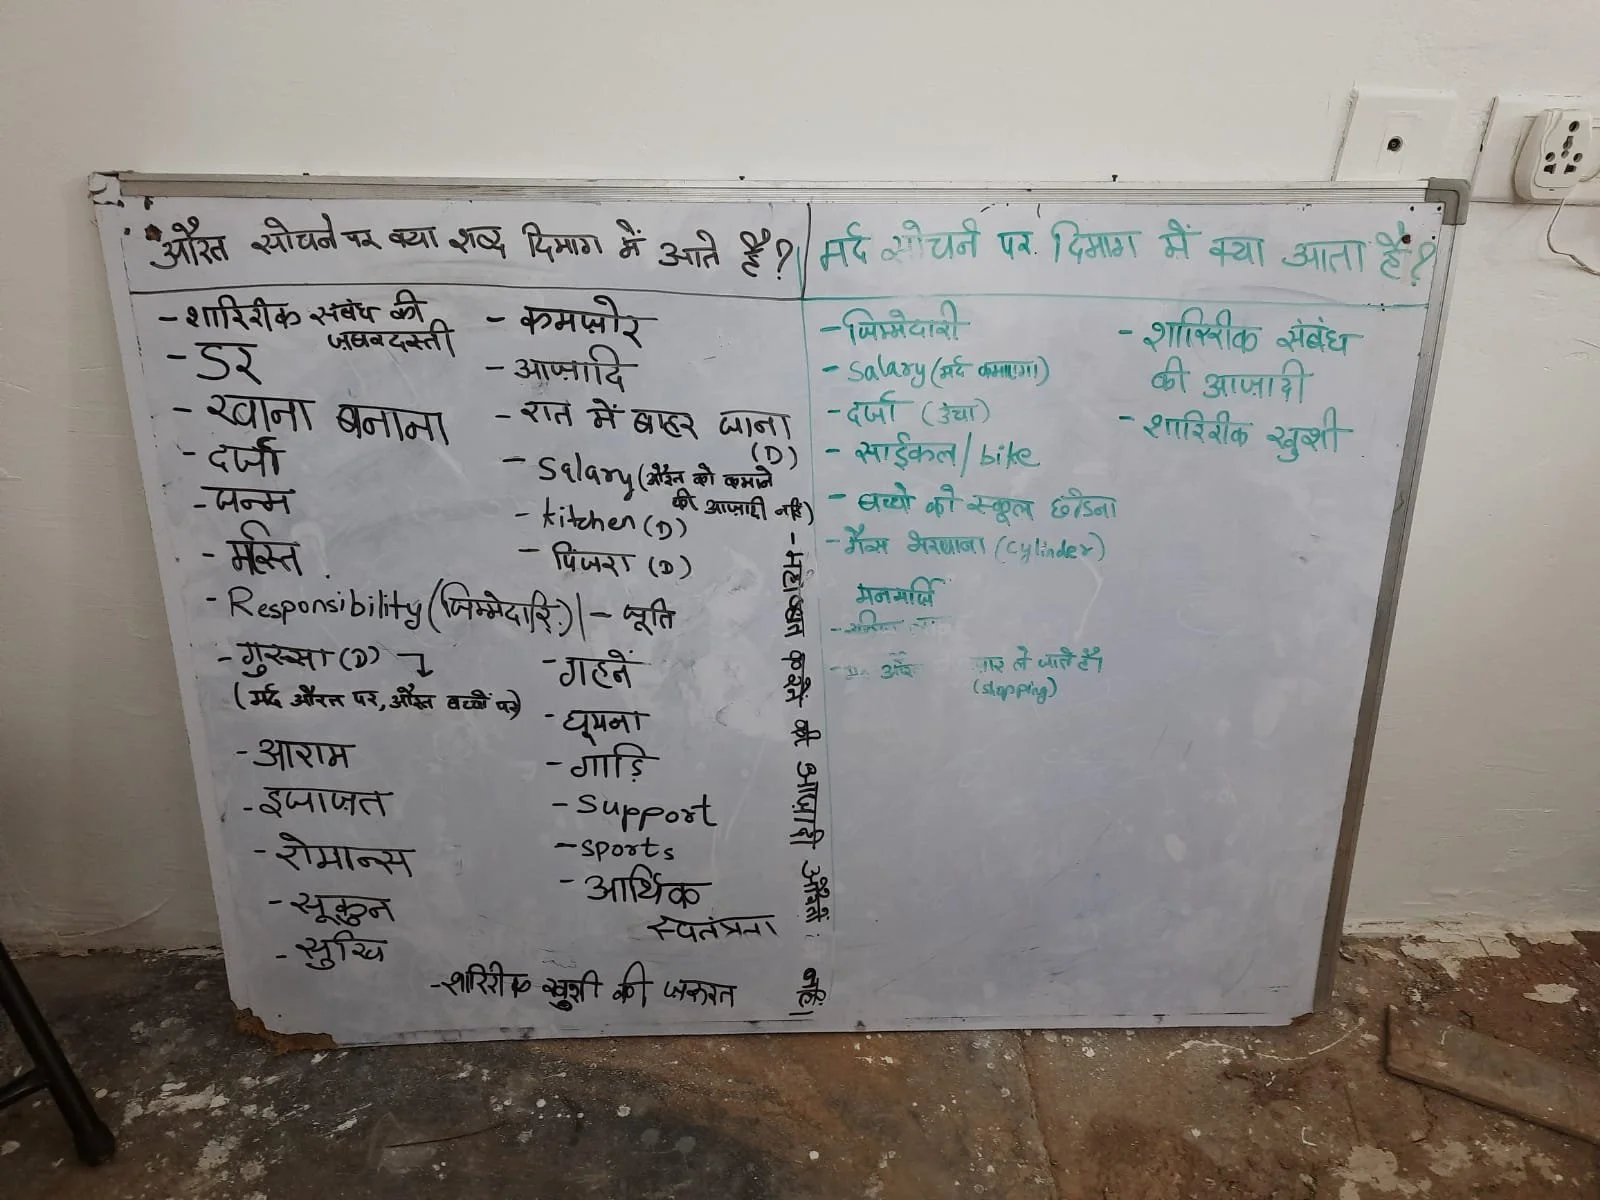 औरत सोचने पर क्या शब्द दिमाग में आते हैं?
- शारिरीक संबंध की
ज़बरदस्ती
- डर
- खाना बनाना
- दर्जा
- जन्म
- मस्ति
- Responsibility (जिम्मेदारि)
- गुस्सा (D) ↴
(मर्द औरत पर, औरत बच्चों पर)
- आराम
- इजाज़त
- रोमान्स
- सूकुन
- सुखि
- कमज़ोर
- आज़ादि
- रात में बाहर जाना
(D)
- Salary (औरत को कमाने
की आज़ादी नहि)
- kitchen (D)
- पिंजरा (D)
- जूति
- गहनें
- घूमना
- गाड़ि
- Support
- sports
- आर्थिक
स्वतंत्रता
- शारिरीक खुशी की ज़रूरत
- करने की आज़ादी औरतों नहिं।
मर्द सोचने पर दिमाग में क्या आता है?
- जिम्मेदारी
- Salary (मर्द कमाएगा)
- दर्जा (उंचा)
- साईकल/bike
- बच्चो को स्कूल छोडना
- गैस भरवाना (cylinder)
मनमर्जि
ले जाते है।
(shopping)
- शारिरीक संबंध
की आज़ादी
- शारिरीक खुशी